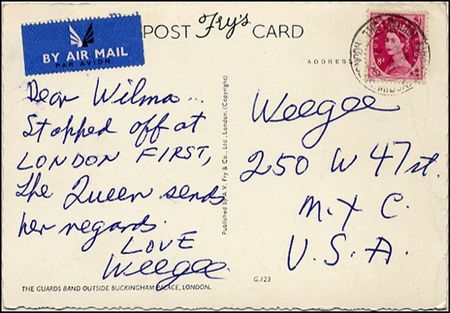 POST Fry's CARD
BY AIR MAIL
PAR AVION
ADDRESS
8D
Dear Wilma...
Stopped off at
LONDON FIRST,
The Queen sends
her regards.
LOVE
Weegee
Published by A. V. Fry & Co., Ltd., London. (Copyright)
Weegee
250 W 47 st.
N.Y C.
U.S.A.
THE GUARDS BAND OUTSIDE BUCKINGHAM PALACE, LONDON.
G.123